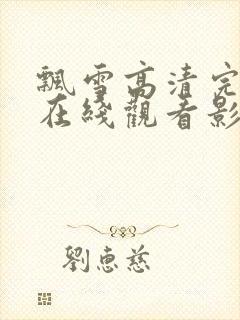 飄雪高清完
在綫觀看影
劉惠慈